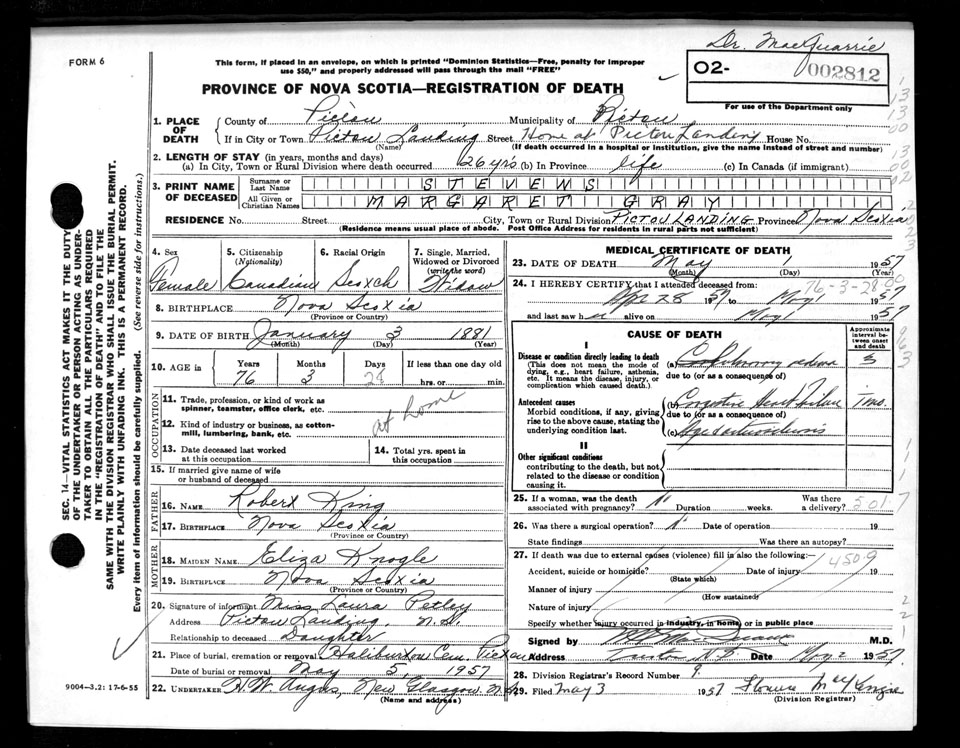 Dr. MacQuarrie
FORM 6
This form, if placed in an envelope, on which is printed "Dominion Statistics—Free, penalty for improper
use $50," and properly addressed will pass through the mail "FREE"
O2-
002812
For use of the Department only
PROVINCE OF NOVA SCOTIA—REGISTRATION OF DEATH
1. PLACE OF DEATH
County of Pictou Municipality of Pictou
If in City or Town Pictou Landing Street Home at Pictou Landing House No.
(Name) (If death occurred in a hospital or institution, give the name instead of street and number)
2. LENGTH OF STAY (in years, months and days)
(a) In City, Town or Rural Division where death occurred 26 yrs (b) In Province life (c) In Canada (if immigrant)
3. PRINT NAME OF DECEASED
Surname or Last Name STEVENS
All Given or Christian Names MARGARET GRAY
RESIDENCE No. Street City, Town or Rural Division PICTOU LANDING Province Nova Scotia
(Residence means usual place of abode. Post Office Address for residents in rural parts not sufficient)
4. Sex
Female
5. Citizenship
(Nationality)
Canadian
6. Racial Origin
Scotch
7. Single, Married,
Widowed or Divorced
(write the word)
Widow
8. BIRTHPLACE Nova Scotia
(Province or Country)
9. DATE OF BIRTH January 3 1881
(Month) (Day) (Year)
10. AGE in
Years Months Days If less than one day
76 3 28 hrs. or min.
OCCUPATION
11. Trade, profession, or kind of work as
spinner, teamster, office clerk, etc.
at home
12. Kind of industry or business, as cotton-
mill, lumbering, bank, etc.
13. Date deceased last worked
at this occupation
14. Total yrs. spent in
this occupation
15. If married give name of wife
or husband of deceased
FATHER
16. NAME Robert King
17. BIRTHPLACE Nova Scotia
(Province or Country)
MOTHER
18. MAIDEN NAME Eliza Knogle
19. BIRTHPLACE Nova Scotia
(Province or Country)
20. Signature of informant Miss Laura Petley
Address Pictou Landing, N.S.
Relationship to deceased Daughter
21. Place of burial, cremation or removal Haliburton Cem. Pictou
Date of burial or removal May 5, 1957
22. UNDERTAKER H.W. Angus, New Glasgow, N.S.
(Name and address)
MEDICAL CERTIFICATE OF DEATH
23. DATE OF DEATH May 1 1957
(Month) (Day) (Year)
24. I HEREBY CERTIFY that I attended deceased from:
76-3-28-00
Apr 28 1957 to May 1 1957
and last saw her alive on May 1 1957
CAUSE OF DEATH
Approximate interval between onset and death
I
Disease or condition directly leading to death
(This does not mean the mode of
dying, e.g., heart failure, asthenia,
etc. It means the disease, injury, or
complication which caused death.)
(a) edema 3
due to (or as a consequence of)
Antecedent causes
Morbid conditions, if any, giving
rise to the above cause, stating the
underlying condition last.
Congestive Heart Failure 1 mo.
due to (or as a consequence of)
(c)
II
Other significant conditions
contributing to the death, but not
related to the disease or condition
causing it.
25. If a woman, was the death
associated with pregnancy? Duration weeks. Was there
a delivery?
26. Was there a surgical operation? Date of operation 19
State findings Was there an autopsy?
27. If death was due to external causes (violence) fill in also the following:—
Accident, suicide or homicide? Date of injury 19
(State which)
450.9
Manner of injury
(How sustained)
Nature of injury
Specify whether injury occurred in industry, in home, or in public place
Signed by M.D.
Address Date May 2 1957
28. Division Registrar's Record Number 9.
29. Filed May 3 1957
(Division Registrar)
SEC. 14—VITAL STATISTICS ACT MAKES IT THE DUTY
OF THE UNDERTAKER OR PERSON ACTING AS UNDER-
TAKER TO OBTAIN ALL THE PARTICULARS REQUIRED
IN THE "REGISTRATION OF DEATH" AND TO FILE THE
SAME WITH THE DIVISION REGISTRAR WHO SHALL ISSUE THE BURIAL PERMIT.
WRITE PLAINLY WITH UNFADING INK. THIS IS A PERMANENT RECORD.
Every item of information should be carefully supplied. (See reverse side for instructions.)
9004—3.2: 17-6-55